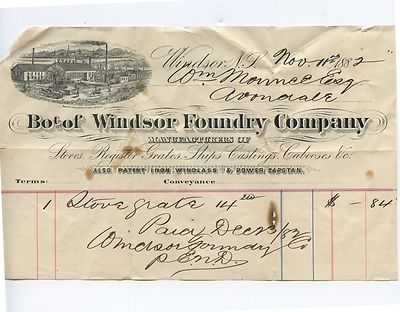 Windsor, N.S. Nov. 11th 1882
Wm Mounce Esq
Avondale
Bot. of Windsor Foundry Company
MANUFACTURERS OF
Stoves, Register Grates, Ships Castings, Cabooses &c.
ALSO PATENT IRON WINDLASS & POWER CAPSTAN.
Terms: Conveyance
1 Stove grate 14 lbs $ - 84
Paid Dec 8/82
Windsor Foundry Co
p E.N.D.